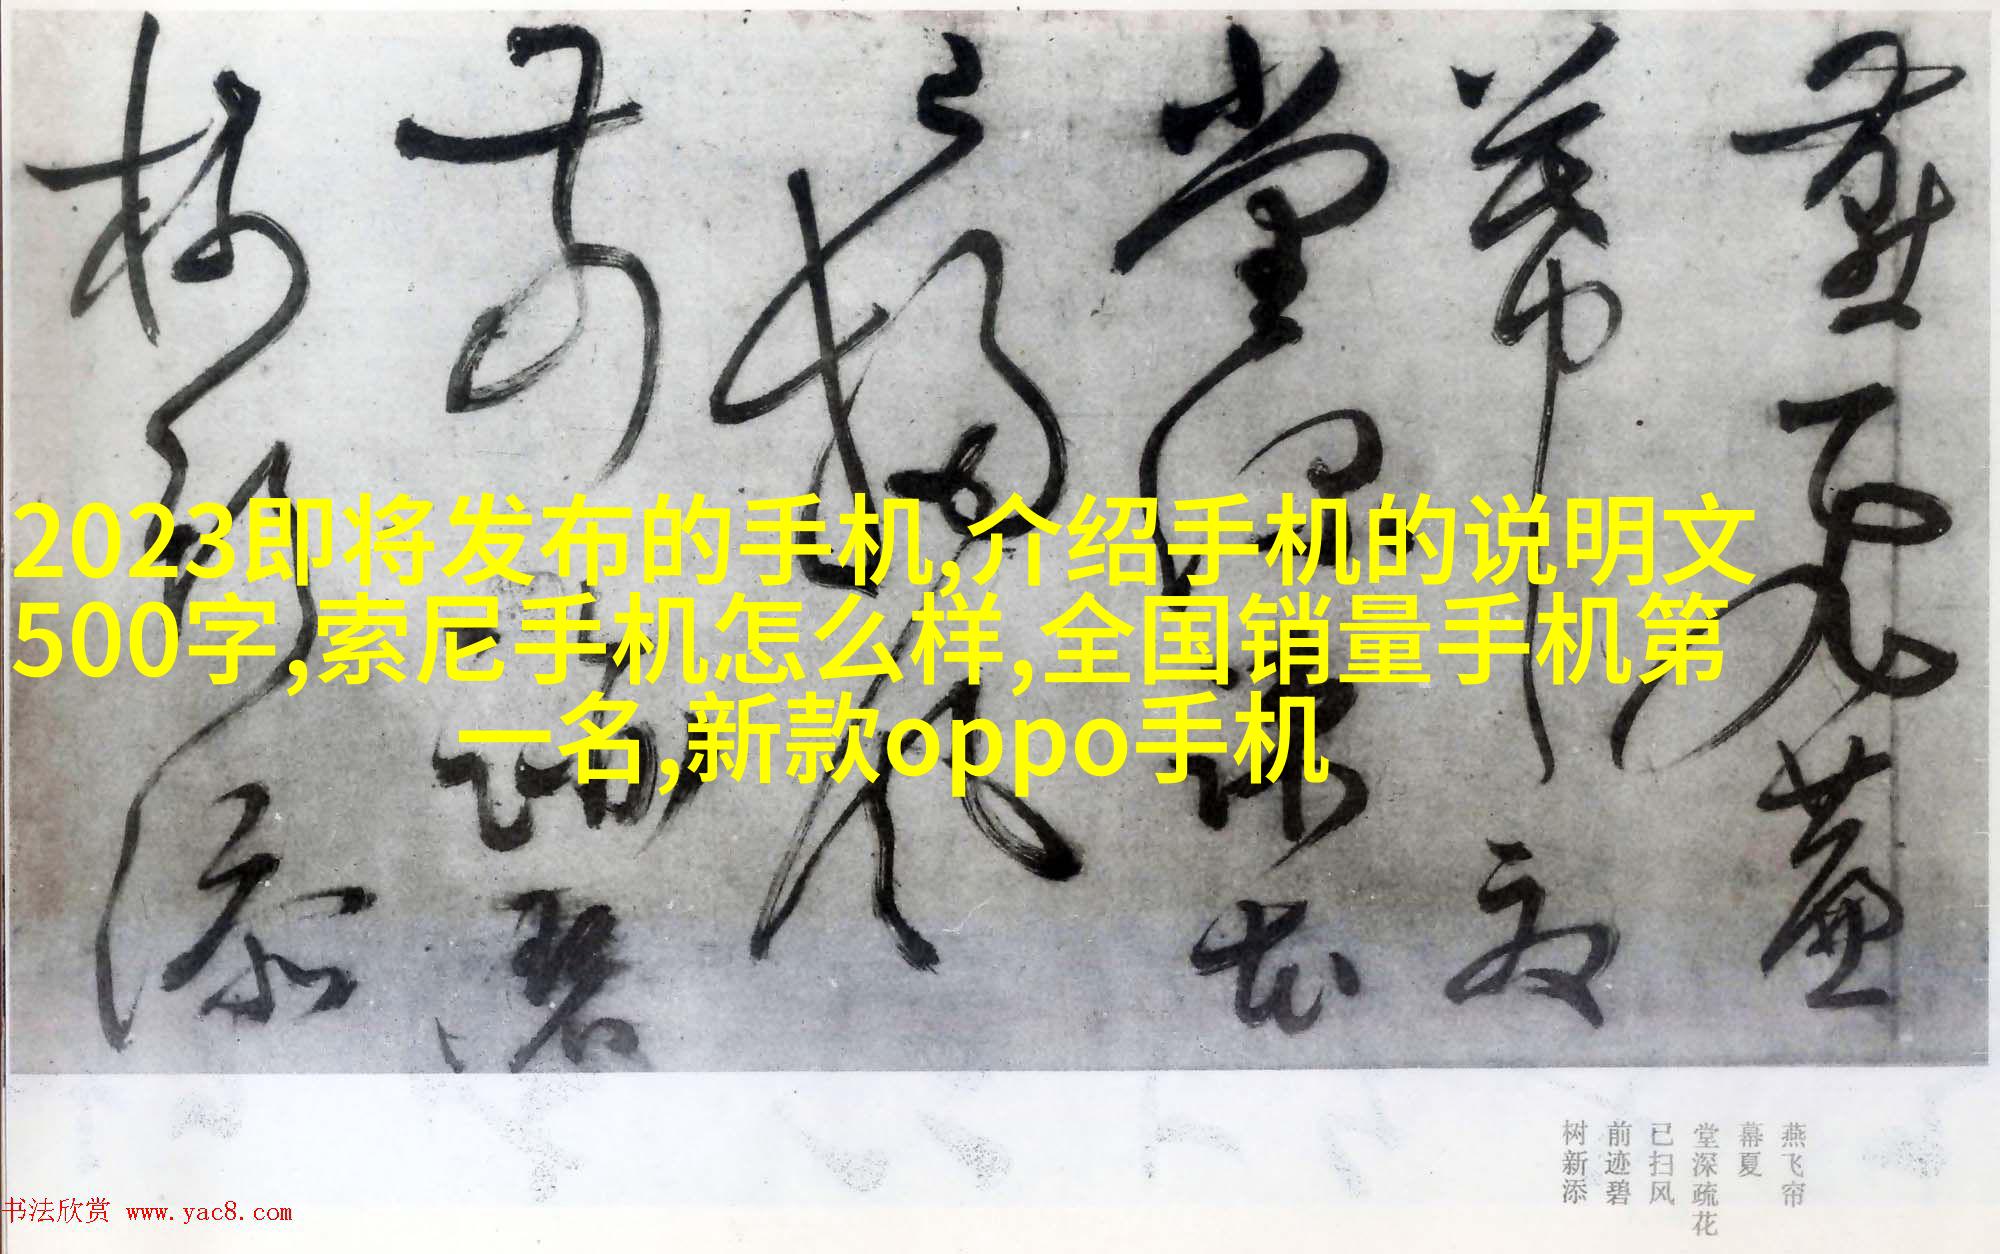 燕飞帘
幕夏
堂深疏花
已扫风
前迹碧
树新添
2023即将发布的手机,介绍手机的说明文
500字,索尼手机怎么样,全国销量手机第
一名,新款oppo手机
燕飞帘
幕夏
堂深疏花
已扫风
前迹碧
树新添
书法欣赏 www.yac8.com